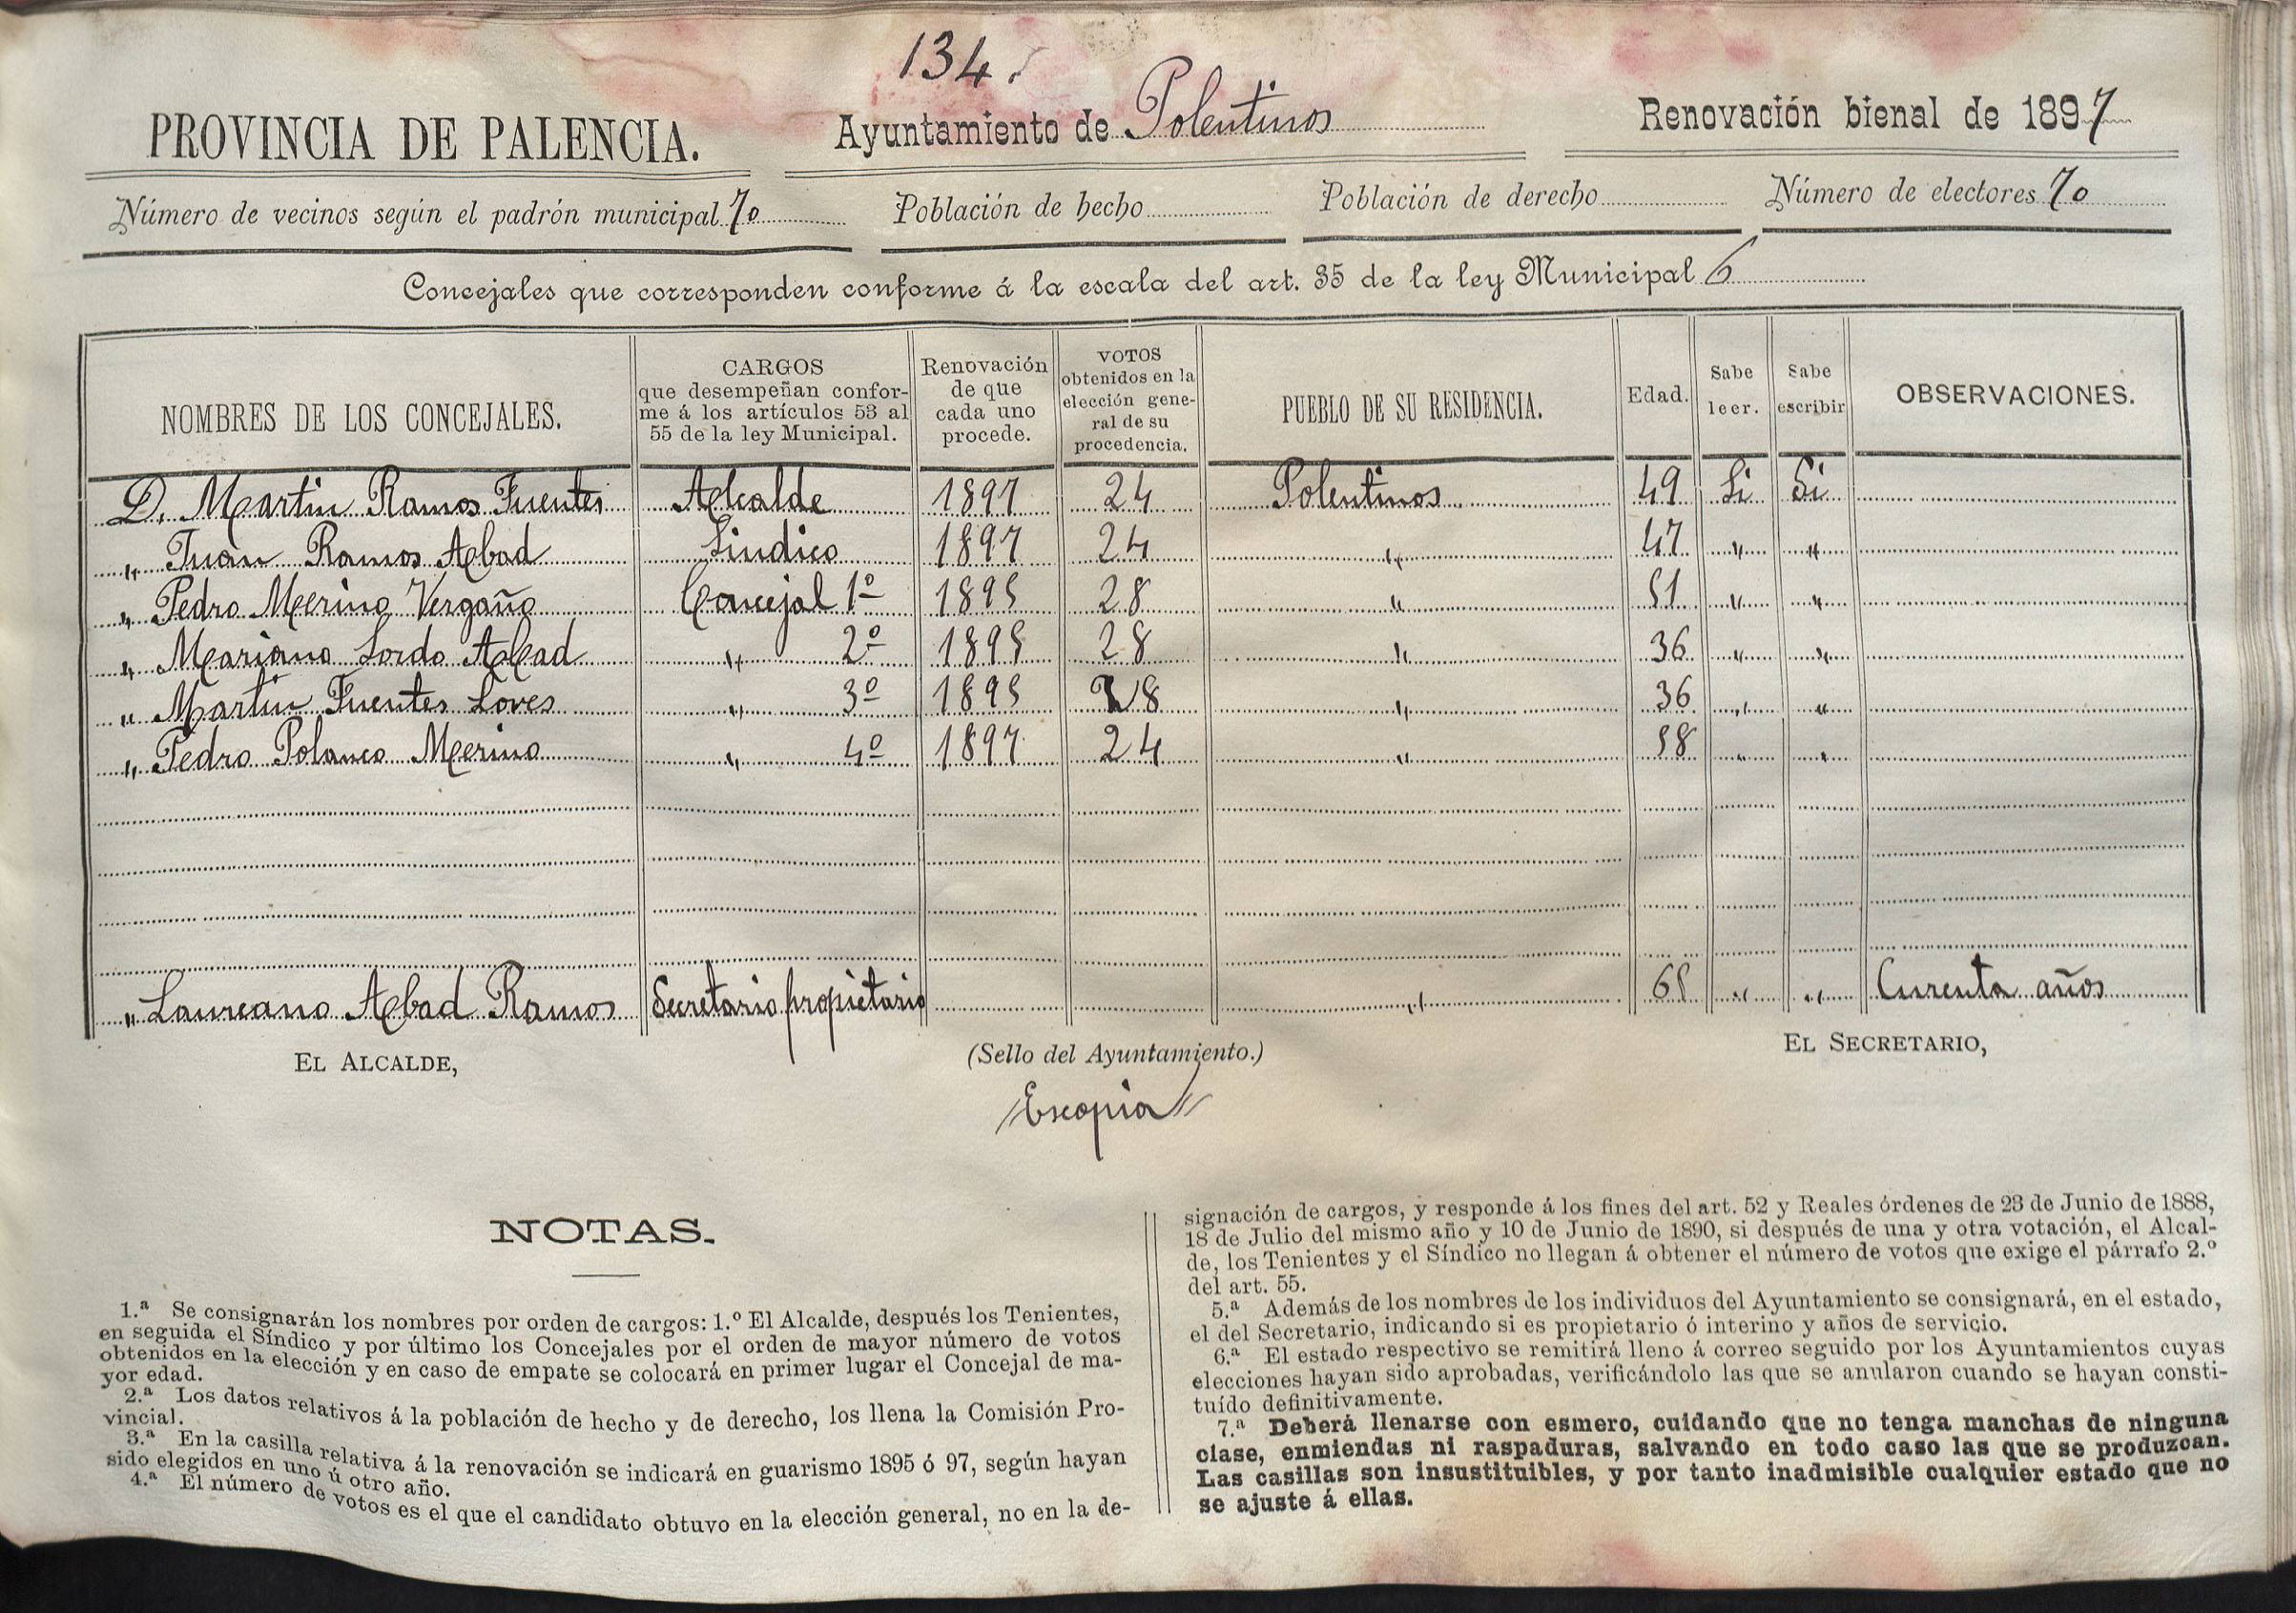 134.
PROVINCIA DE PALENCIA.
Ayuntamiento de Polentinos
Renovación bienal de 1897
Número de vecinos según el padrón municipal 70
Población de hecho
Población de derecho
Número de electores 70
Concejales que corresponden conforme á la escala del art. 35 de la ley Municipal 6
NOMBRES DE LOS CONCEJALES.
CARGOS
que desempeñan confor-
me á los artículos 53 al
55 de la ley Municipal.
Renovación
de que
cada uno
procede.
VOTOS
obtenidos en la
elección gene-
ral de su
procedencia.
PUEBLO DE SU RESIDENCIA.
Edad.
Sabe
leer.
Sabe
escribir
OBSERVACIONES.
D. Martin Ramos Fuentes Alcalde 1897 24 Polentinos 49 Si Si
" Juan Ramos Abad Sindico 1897 24 " 47 " "
" Pedro Merino Vergaño Concejal 1º 1895 28 " 51 " "
" Mariano Lordo Abad " 2º 1895 28 " 36 " "
" Martin Fuentes Loves " 3º 1895 28 " 36 " "
" Pedro Polanco Merino " 4º 1897 24 " 58 " "
" Laureano Abad Ramos Secretario propietario " 65 " " Curenta años
EL ALCALDE,
(Sello del Ayuntamiento.)
EL SECRETARIO,
Es copia
NOTAS.
1.ª Se consignarán los nombres por orden de cargos: 1.º El Alcalde, después los Tenientes,
en seguida el Síndico y por último los Concejales por el orden de mayor número de votos
obtenidos en la elección y en caso de empate se colocará en primer lugar el Concejal de ma-
yor edad.
2.ª Los datos relativos á la población de hecho y de derecho, los llena la Comisión Pro-
vincial.
3.ª En la casilla relativa á la renovación se indicará en guarismo 1895 ó 97, según hayan
sido elegidos en uno ú otro año.
4.ª El número de votos es el que el candidato obtuvo en la elección general, no en la de-
signación de cargos, y responde á los fines del art. 52 y Reales órdenes de 23 de Junio de 1888,
18 de Julio del mismo año y 10 de Junio de 1890, si después de una y otra votación, el Alcal-
de, los Tenientes y el Síndico no llegan á obtener el número de votos que exige el párrafo 2.º
del art. 55.
5.ª Además de los nombres de los individuos del Ayuntamiento se consignará, en el estado,
el del Secretario, indicando si es propietario ó interino y años de servicio.
6.ª El estado respectivo se remitirá lleno á correo seguido por los Ayuntamientos cuyas
elecciones hayan sido aprobadas, verificándolo las que se anularon cuando se hayan consti-
tuído definitivamente.
7.ª Deberá llenarse con esmero, cuidando que no tenga manchas de ninguna
clase, enmiendas ni raspaduras, salvando en todo caso las que se produzcan.
Las casillas son insustituibles, y por tanto inadmisible cualquier estado que no
se ajuste á ellas.